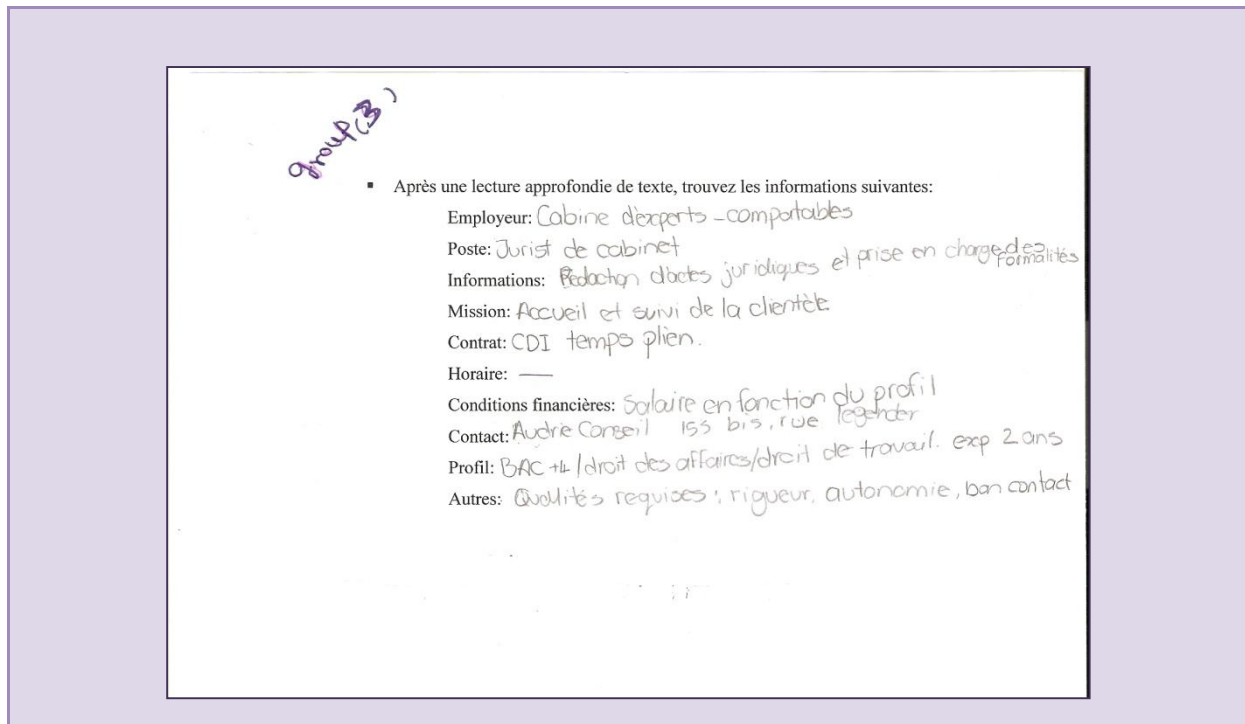 group(3)
▪ Après une lecture approfondie de texte, trouvez les informations suivantes:
Employeur: Cabine d'experts-comportables
Poste: Jurist de cabinet
Informations: Rédaction d'actes juridiques et prise en charge des formalités
Mission: Accueil et suivi de la clientèle
Contrat: CDI temps plien.
Horaire: —
Conditions financières: Salaire en fonction du profil
Contact: Audrie Conseil 155 bis, rue legender
Profil: BAC +4 / droit des affaires/droit de travail. exp 2 ans
Autres: Qualités requises: rigueur, autonomie, bon contact